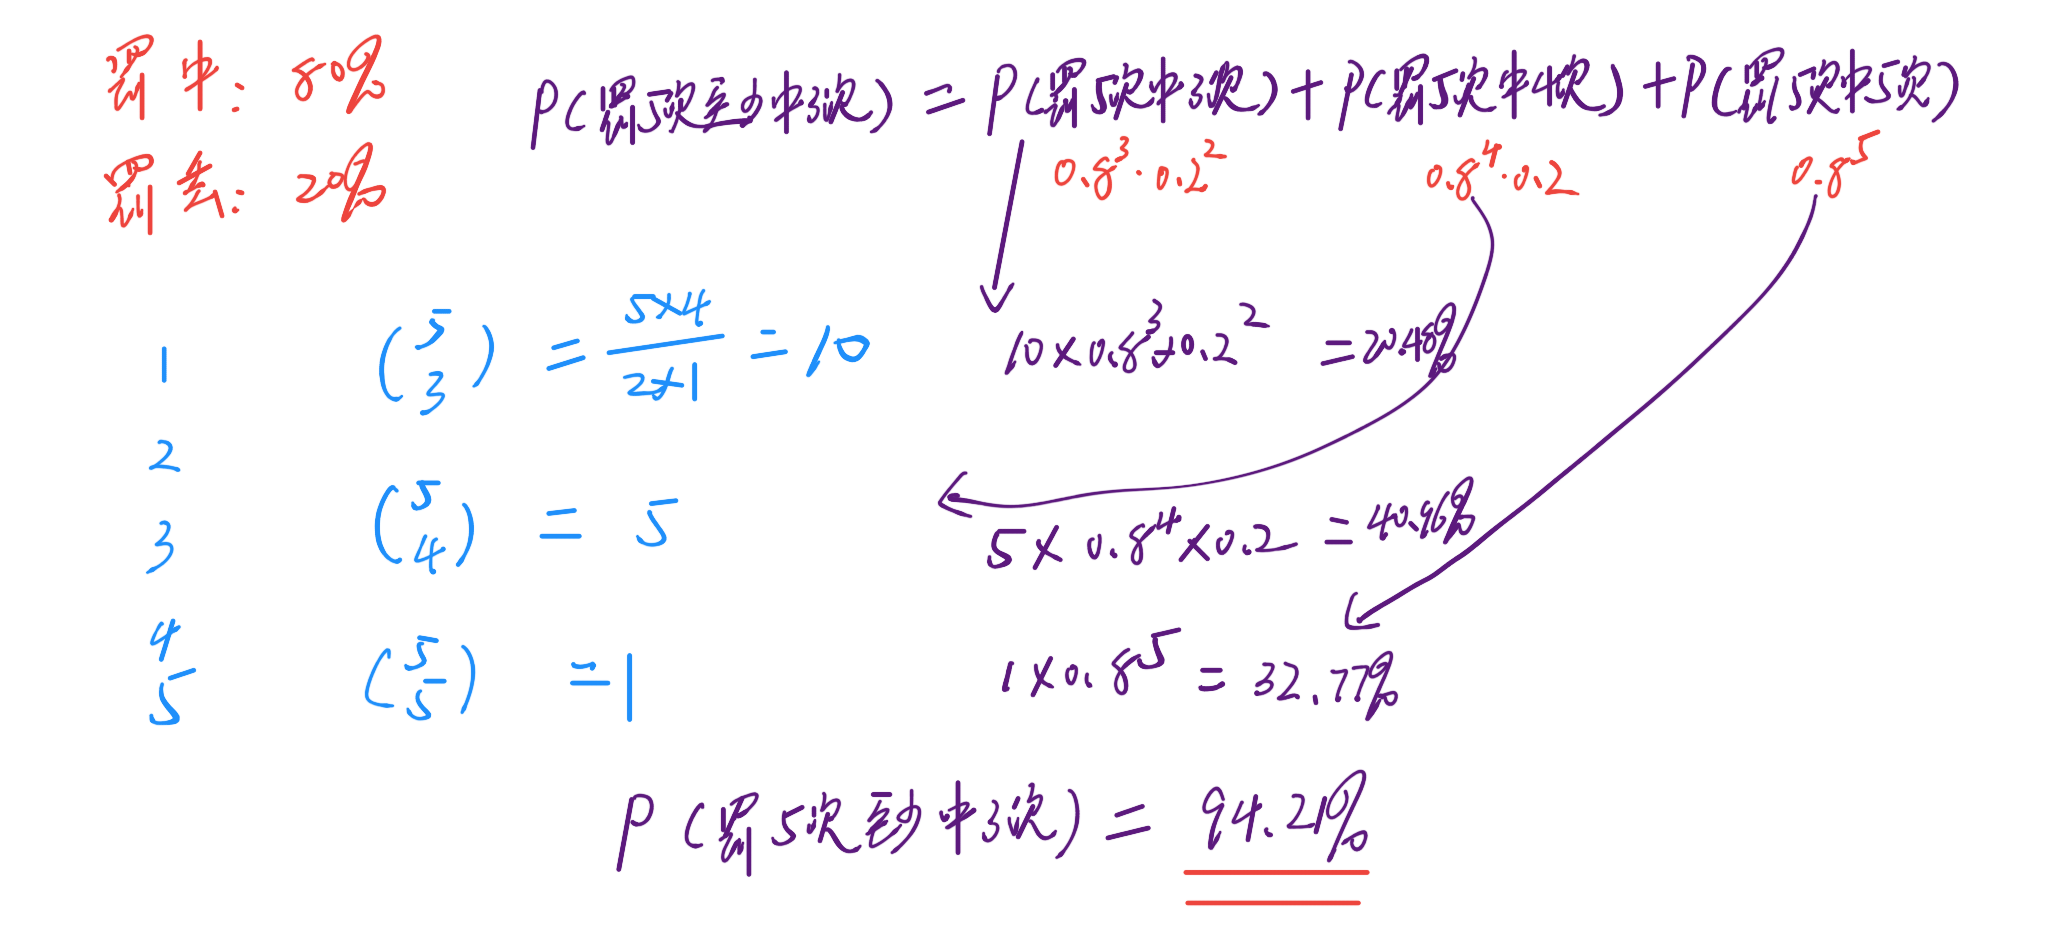 罚中: 80%
P(罚5次至少中3次) = P(罚5次中3次) + P(罚5次中4次) + P(罚5次中5次)
罚丢: 20%
0.8³·0.2² 0.8⁴·0.2 0.8⁵
1 (5 3) = 5×4 / 2×1 = 10 10×0.8³×0.2² = 20.48%
2
3 (5 4) = 5 5×0.8⁴×0.2 = 40.96%
4
5 (5 5) = 1 1×0.8⁵ = 32.77%
P(罚5次至少中3次) = 94.21%